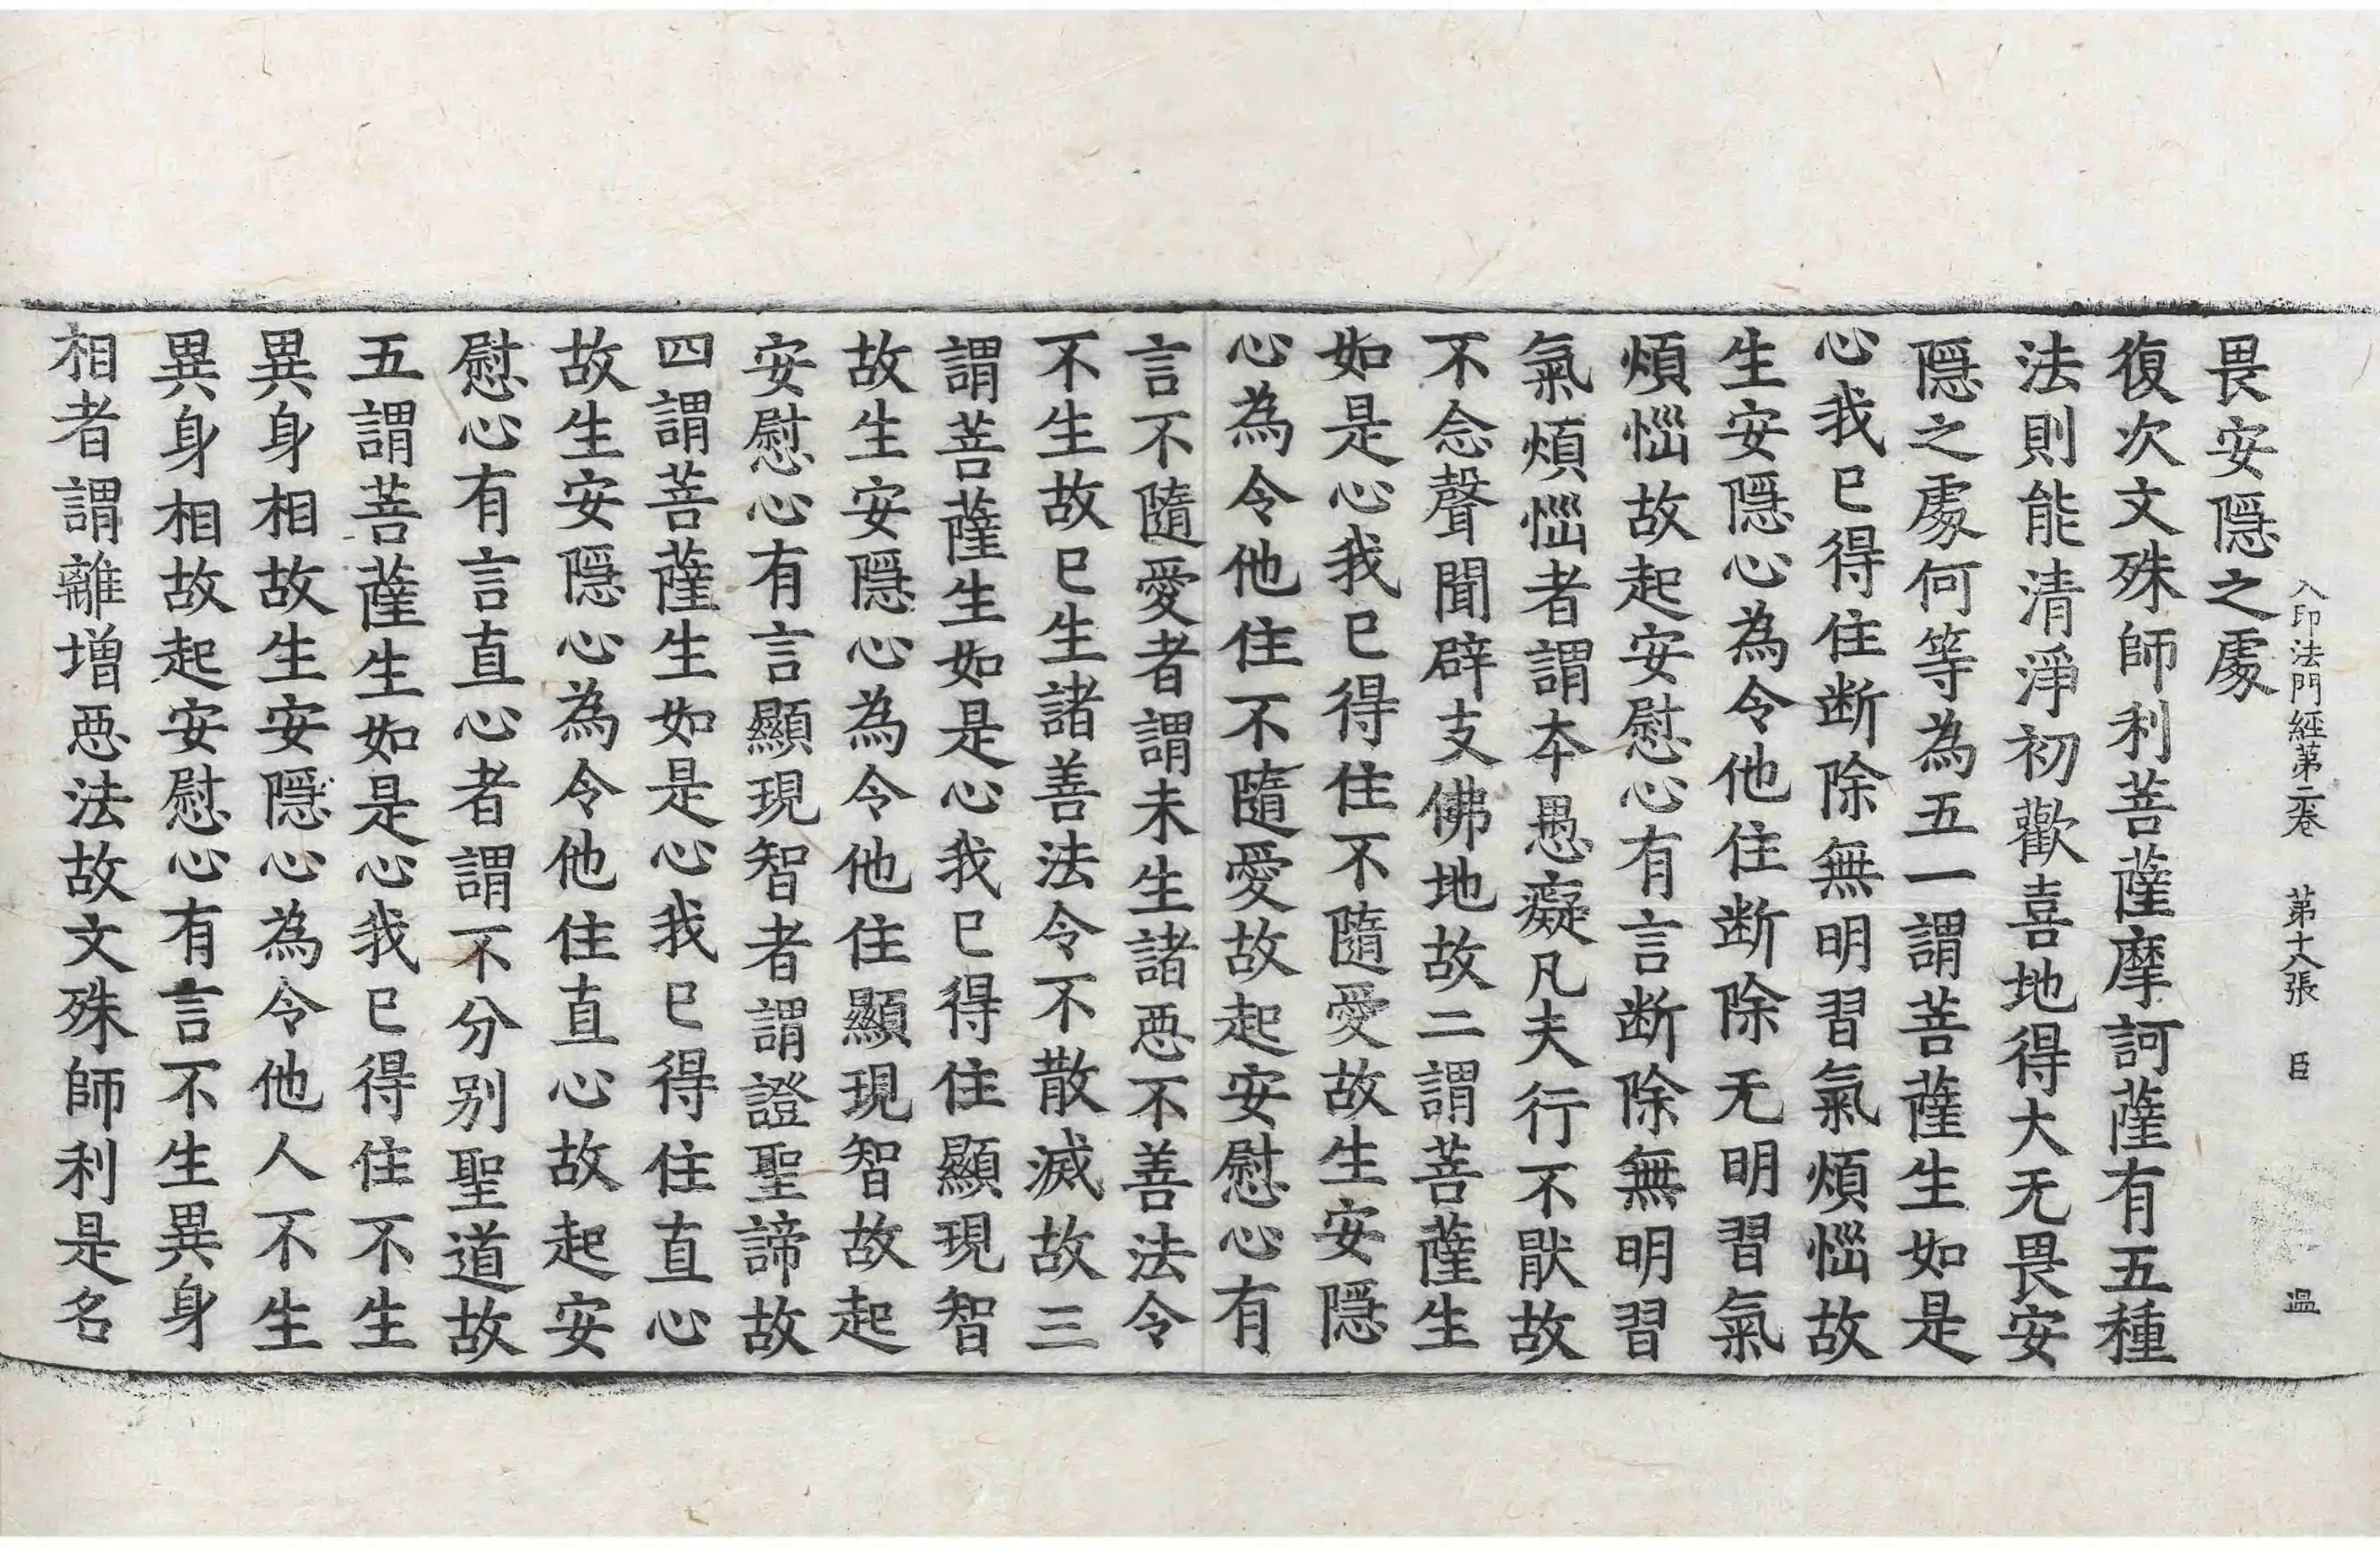 入印法門經第二卷 第十六張 臣
畏安隱之處
復次文殊師利菩薩摩訶薩有五種
法則能清淨初歡喜地得大无畏安
隱之處何等為五一謂菩薩生如是
心我已得住断除無明習氣煩惱故
生安隱心為令他住断除无明習氣
煩惱故起安慰心有言断除無明習
氣煩惱者謂本愚癡凡夫行不猒故
不念聲聞辟支佛地故二謂菩薩生
如是心我已得住不隨愛故生安隱
心為令他住不隨愛故起安慰心有
言不隨愛者謂未生諸惡不善法令
不生故已生諸善法令不散滅故三
謂菩薩生如是心我已得住顯現智
故生安隱心為令他住顯現智故起
安慰心有言顯現智者謂證聖諦故
四謂菩薩生如是心我已得住直心
故生安隱心為令他住直心故起安
慰心有言直心者謂不分別聖道故
五謂菩薩生如是心我已得住不生
異身相故生安隱心為令他人不生
異身相故起安慰心有言不生異身
相者謂離增惡法故文殊師利是名